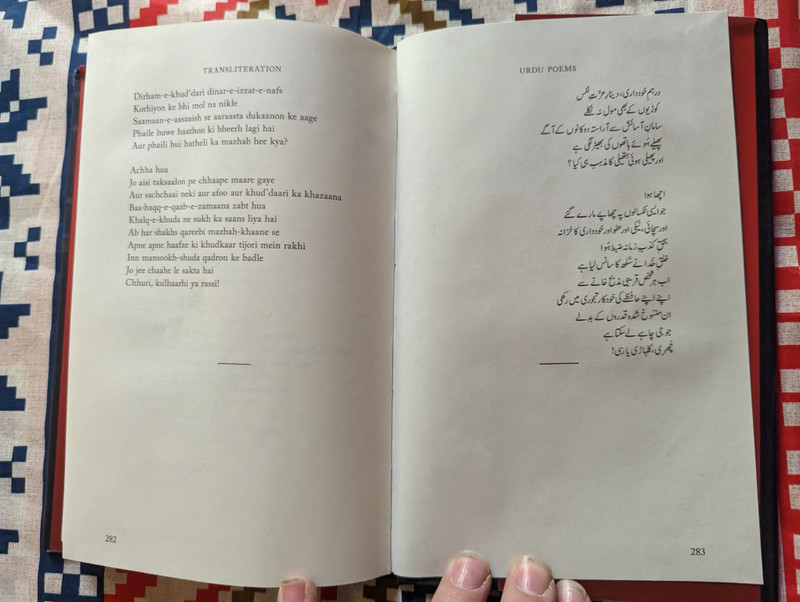 TRANSLITERATION
Dirham-e-khud'dari dinar-e-izzat-e-nafs
Korhiyon ke bhi mol na nikle
Saamaan-e-aassaish se aaraasta dukaanon ke aage
Phaile huwe haathon ki bheerh lagi hai
Aur phaili hui hatheli ka mazhab hee kya?
Achha hua
Jo aisi taksaalon pe chhaape maare gaye
Aur sachchaai neki aur afoo aur khud'daari ka khazaana
Baa-haqq-e-qazb-e-zamaana zabt hua
Khalq-e-khuda ne sukh ka saans liya hai
Ab har shakhs qareebi mazbah-khaane se
Apne apne haafze ki khudkaar tijori mein rakhi
Inn mansookh-shuda qadron ke badle
Jo jee chaahe le sakta hai
Chhuri, kulhaarhi ya rassi!
282
URDU POEMS
درہمِ خودداری، دینارِ عزّتِ نفس
کوڑیوں کے بھی مول نہ نکلے
سامانِ آسائش سے آراستہ دوکانوں کے آگے
پھیلے ہوئے ہاتھوں کی بھیڑ لگی ہے
اور پھیلی ہوئی ہتھیلی کا مذہب ہی کیا؟
اچھا ہوا
جو ایسی ٹکسالوں پہ چھاپے مارے گئے
اور سچائی، نیکی اور عفو اور خودداری کا خزانہ
بحقِ کذبِ زمانہ ضبط ہُوا
خلقِ خُدا نے سُکھ کا سانس لیا ہے
اب ہر شخص قریبی مذبح خانے سے
اپنے اپنے حافظے کی خودکار تجوری میں رکھی
ان منسُوخ شدہ قدروں کے بدلے
جو جی چاہے لے سکتا ہے
چھُری، کلہاڑی یا رسی!
283